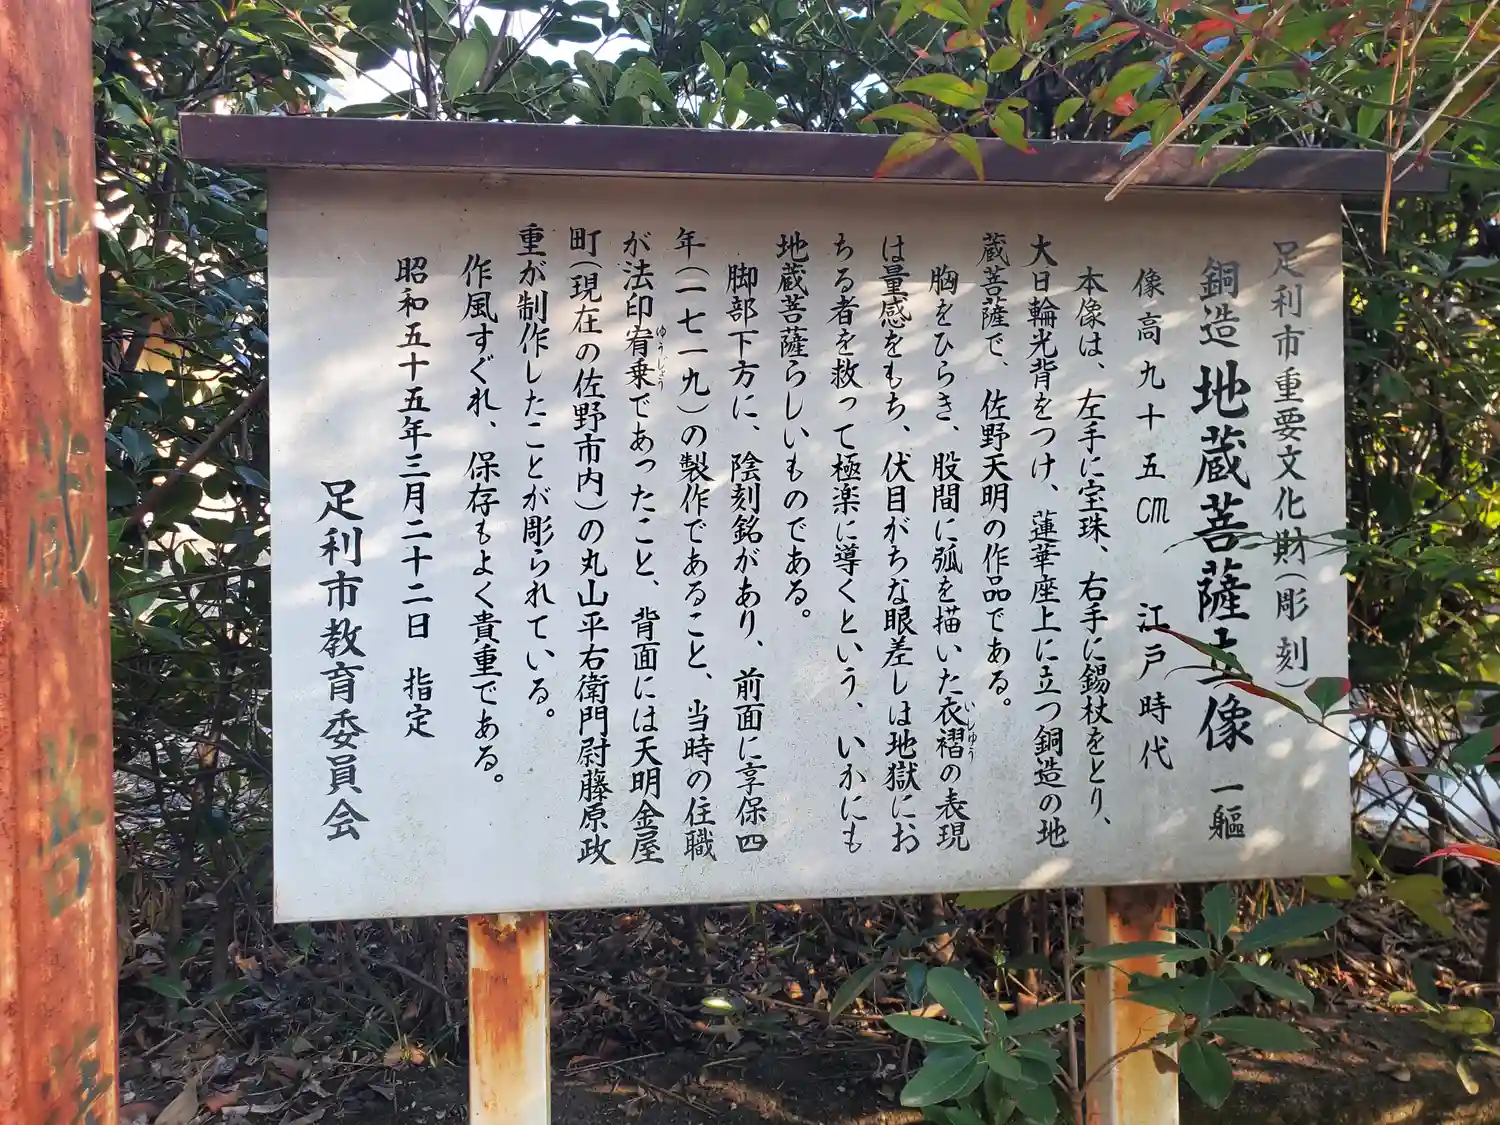 足利市重要文化財(彫刻)
銅造 地蔵菩薩立像 一軀
像高九十五㎝ 江戸時代
本像は、左手に宝珠、右手に錫杖をとり、
大日輪光背をつけ、蓮華座上に立つ銅造の地
蔵菩薩で、佐野天明の作品である。
胸をひらき、股間に弧を描いた衣褶の表現
いしゅう
は量感をもち、伏目がちな眼差しは地獄にお
ちる者を救って極楽に導くという、いかにも
地蔵菩薩らしいものである。
脚部下方に、陰刻銘があり、前面に享保四
年(一七一九)の製作であること、当時の住職
が法印宥乗であったこと、背面には天明金屋
ゆうじょう
町(現在の佐野市内)の丸山平右衛門尉藤原政
重が制作したことが彫られている。
作風すぐれ、保存もよく貴重である。
昭和五十五年三月二十二日 指定
足利市教育委員会
地蔵菩